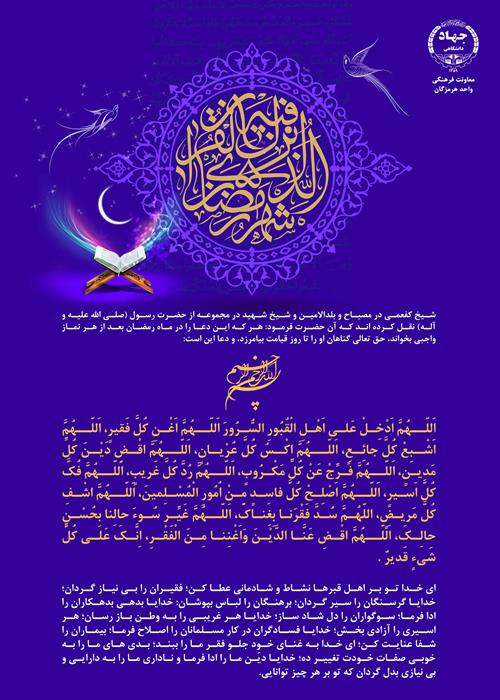 جهاد
دانشگاهی
۱۳۵۹
معاونت فرهنگی
واحد هرمزگان
شهر رمضان الذی انزل فیه القرآن
شیخ کفعمی در مصباح و بلدالامین و شیخ شهید در مجموعه از حضرت رسول (صلی الله علیه و
آله) نقل کرده اند که آن حضرت فرمود: هر که این دعا را در ماه رمضان بعد از هر نماز
واجبی بخواند، حق تعالی گناهان او را تا روز قیامت بیامرزد، و دعا این است:
بسم الله الرحمن الرحیم
اَللّهُمَّ اَدْخِلْ عَلى اَهْلِ الْقُبُورِ السُّرُورَ اَللّهُمَّ اَغْنِ كُلَّ فَقيرٍ، اَللّهُمَّ
اَشْبِعْ كُلَّ جائِعٍ، اَللّهُمَّ اكْسُ كُلَّ عُرْيانٍ، اَللّهُمَّ اقْضِ دَيْنَ كُلِّ
مَدينٍ، اَللّهُمَّ فَرِّجْ عَنْ كُلِّ مَكْرُوبٍ، اَللّهُمَّ رُدَّ كُلَّ غَريبٍ، اَللّهُمَّ فُكَّ
كُلَّ اَسيرٍ، اَللّهُمَّ اَصْلِحْ كُلَّ فاسِدٍ مِنْ اُمُورِ الْمُسْلِمينَ، اَللّهُمَّ اشْفِ
كُلَّ مَريضٍ، اَللّهُمَّ سُدَّ فَقْرَنا بِغِناكَ، اَللّهُمَّ غَيِّرْ سُوءَ حالِنا بِحُسْنِ
حالِكَ، اَللّهُمَّ اقْضِ عَنَّا الدَّيْنَ وَاَغْنِنا مِنَ الْفَقْرِ، اِنَّكَ عَلى كُلِّ
شَىءٍ قَديرٌ .
ای خدا تو بر اهل قبرها نشاط و شادمانی عطا کن؛ فقیران را بی نیاز گردان؛
خدایا گرسنگان را سیر گردان؛ برهنگان را لباس بپوشان: خدایا بدهی بدهکاران را
ادا فرما؛ سوگواران را دل شاد ساز؛ خدایا هر غریبی را به وطن باز رسان؛ هر
اسیری را آزادی بخش؛ خدایا فسادگران در کار مسلمانان را اصلاح فرما؛ بیماران را
شفا عنایت کن؛ ای خدا به غنای خود جلو فقر ما را ببند؛ بدی های ما را به
خوبی صفات خودت تغییر ده؛ خدایا دین ما را ادا فرما و ناداری ما را به دارایی و
بی نیازی بدل گردان که تو بر هر چیز توانایی.